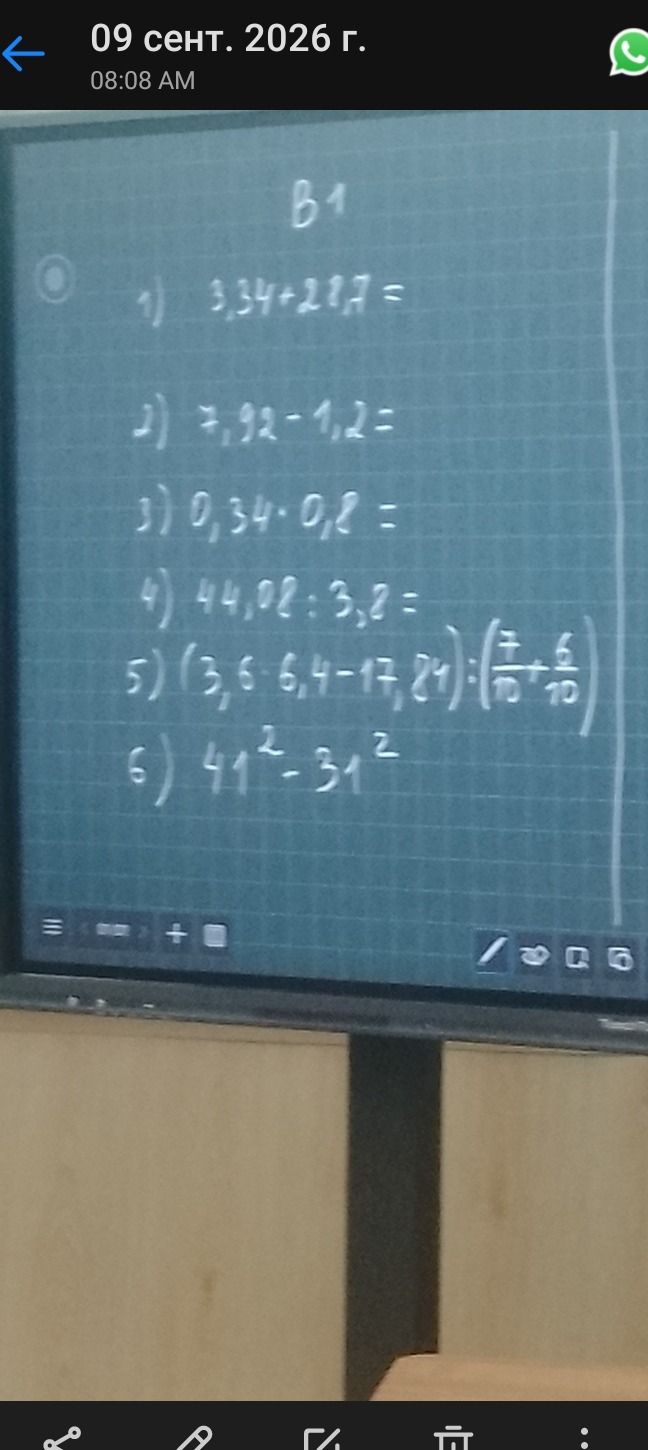 09 сент. 2026 г.
08:08 AM
В1
1) 3,34+28,7=
2) 7,92-1,2=
3) 0,34·0,8=
4) 44,08:3,8=
5) (3,6·6,4-17,84):(7/10+6/10)
6) 41²-31²